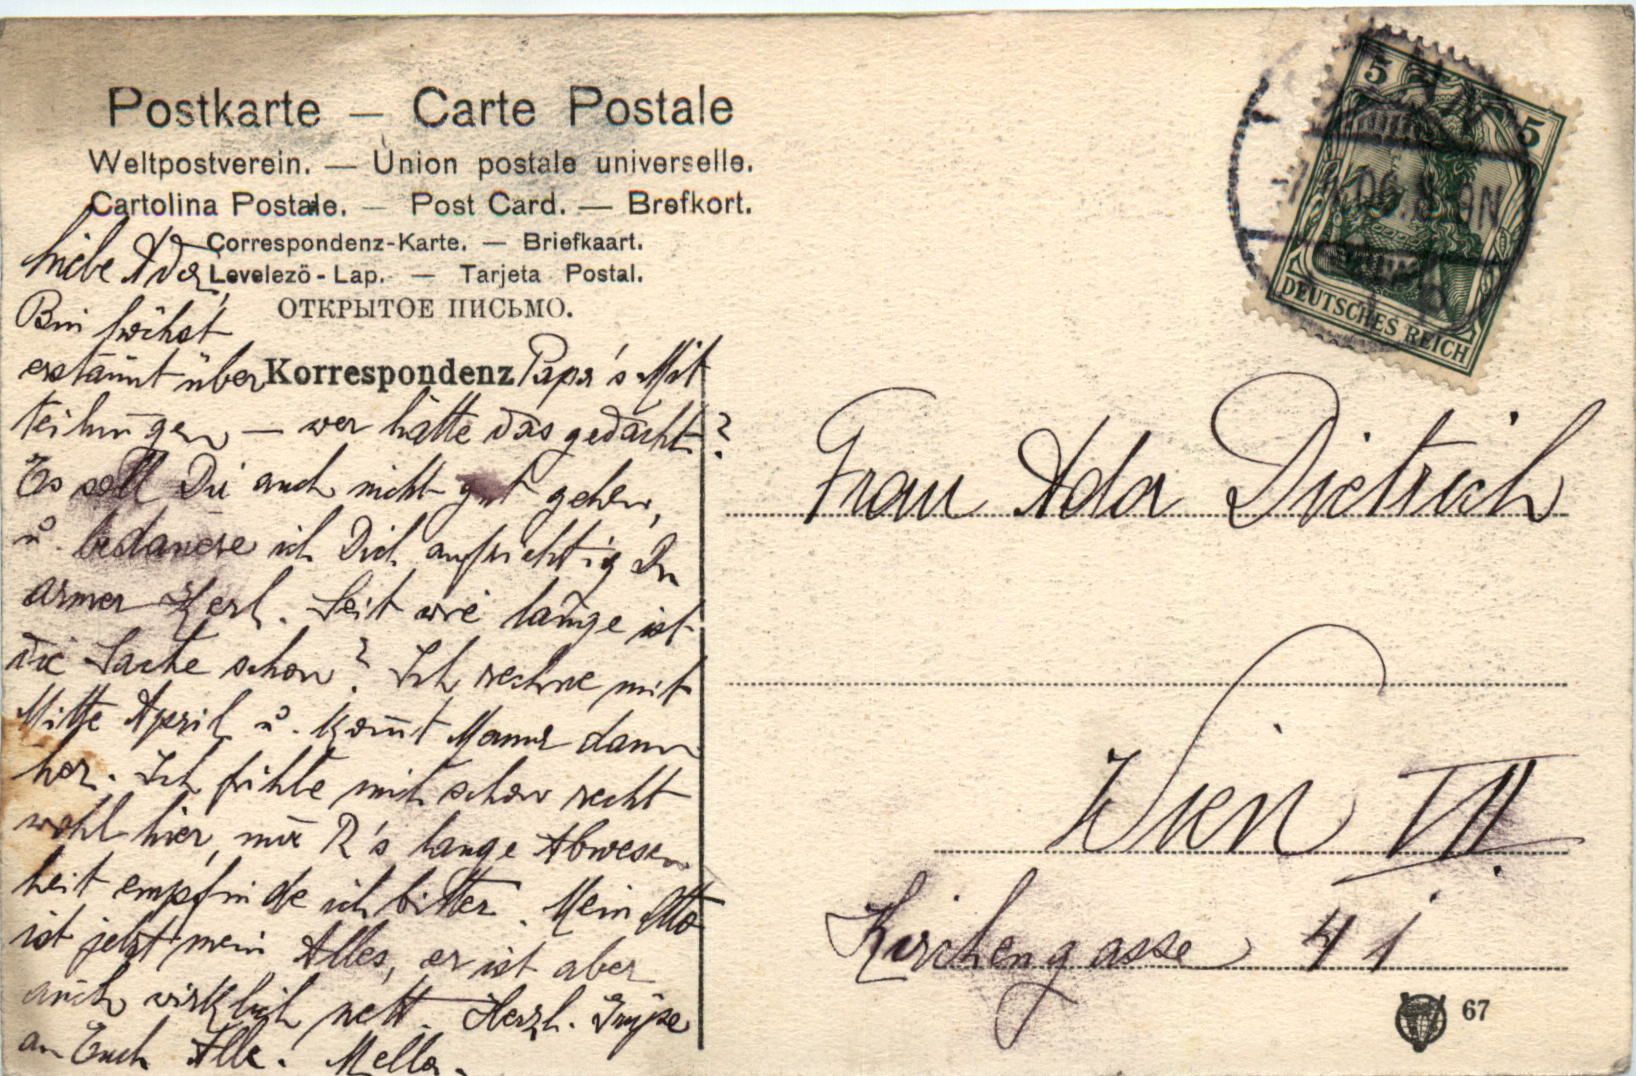 Postkarte — Carte Postale
Weltpostverein. — Union postale universelle.
Cartolina Postale. — Post Card. — Brefkort.
Correspondenz-Karte. — Briefkaart.
Levelezö-Lap. — Tarjeta Postal.
ОТКРЫТОЕ ПИСЬМО.
Korrespondenz
Liebe Ada,
Bin höchst
erstaunt über Papa's Mit
teilungen — wer hätte das gedacht?
Es soll Dir auch nicht gut gehen,
u. bedauere ich Dich aufrichtig Du
armer Kerl. Seit wie lange ist
die Sache schon? Ich rechne mit
Mitte April u. kom̅t Mama dann
her. Ich fühle mich schon recht
wohl hier, nur R's lange Abwesen
heit empfinde ich bitter. Mein Otto
ist jetzt mein Alles, er ist aber
auch wirklich nett. Herzl. Grüße
an Euch Alle. Mella.
5 5
06.8-9N
DEUTSCHES REICH
Frau Ada Dietrich
Wien VII.
Kirchengasse 41
67